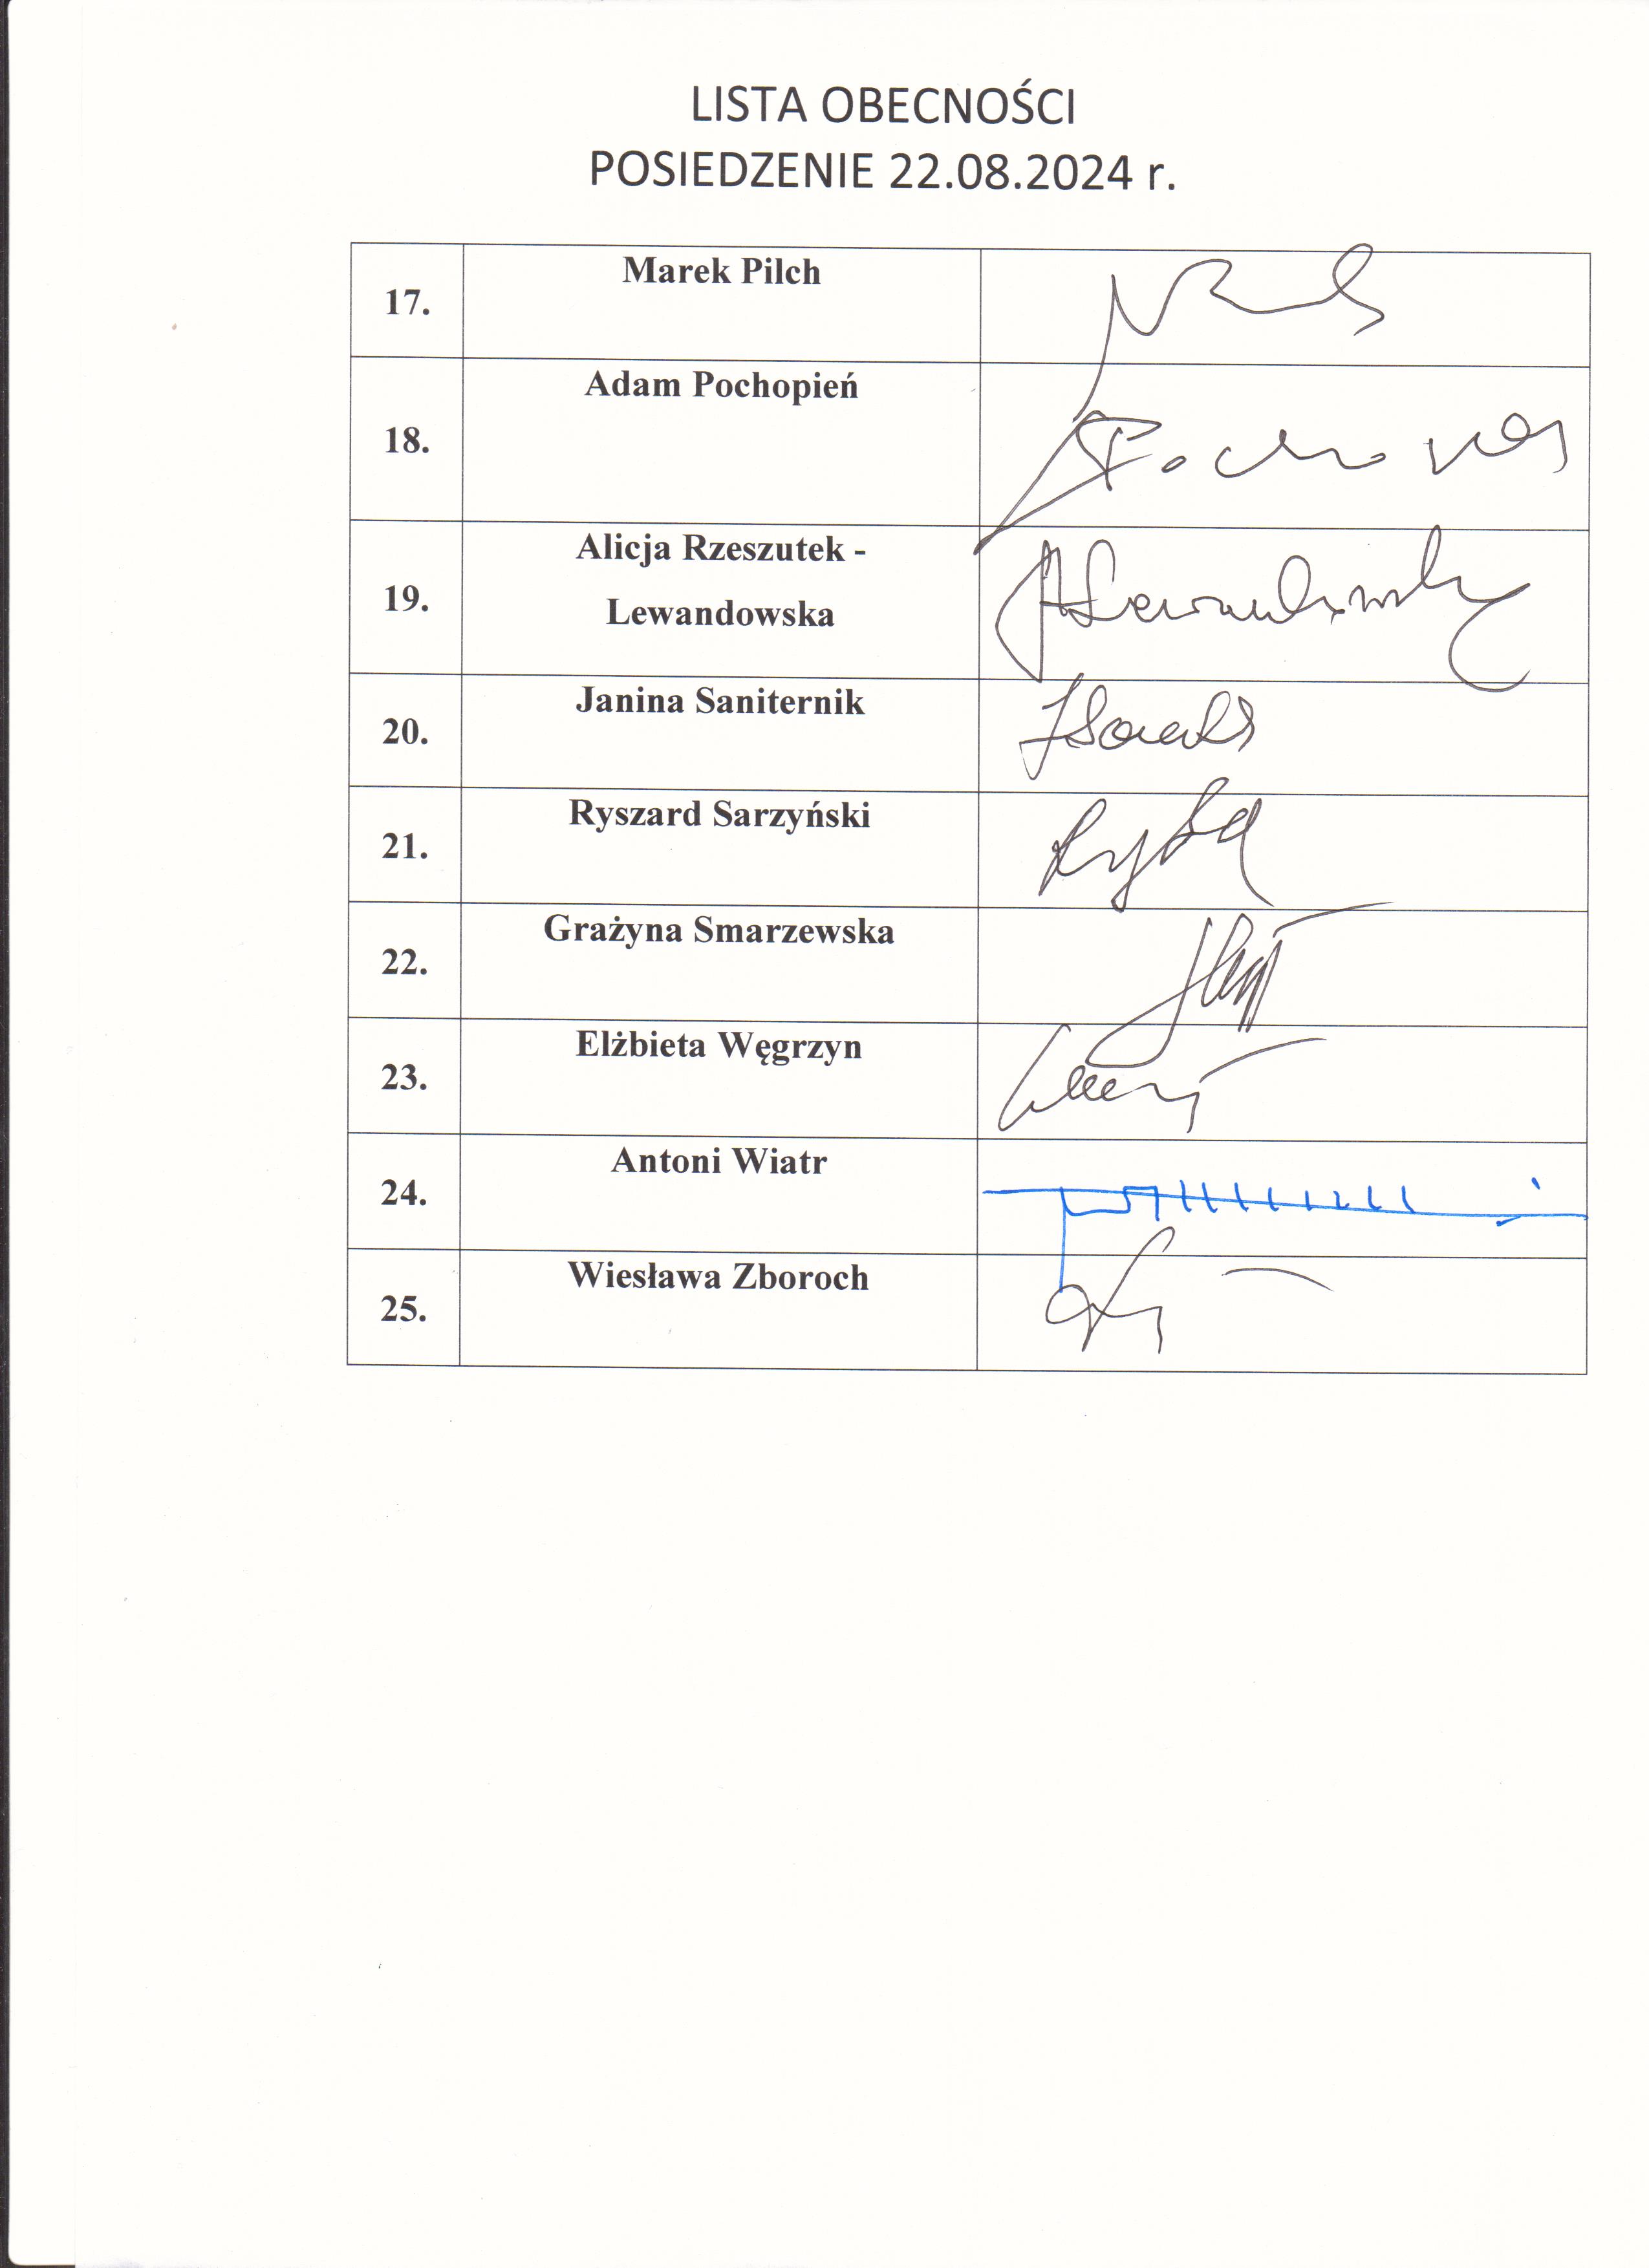 LISTA OBECNOŚCI
POSIEDZENIE 22.08.2024 r.
17. Marek Pilch
18. Adam Pochopień
19. Alicja Rzeszutek -
Lewandowska
20. Janina Saniternik
21. Ryszard Sarzyński
22. Grażyna Smarzewska
23. Elżbieta Węgrzyn
24. Antoni Wiatr
25. Wiesława Zboroch